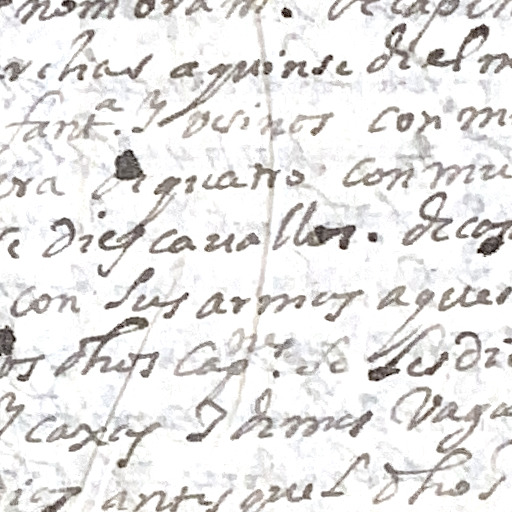 nombraran. Decapi
rchas aquinse di el m
fant.a y vesinos con m
ora y quatro con mu
e dies cavallos. de co
con sus armas aques
os dhos cap.nes se les di
y caxas y demas Vaga
dias antes que l dhos